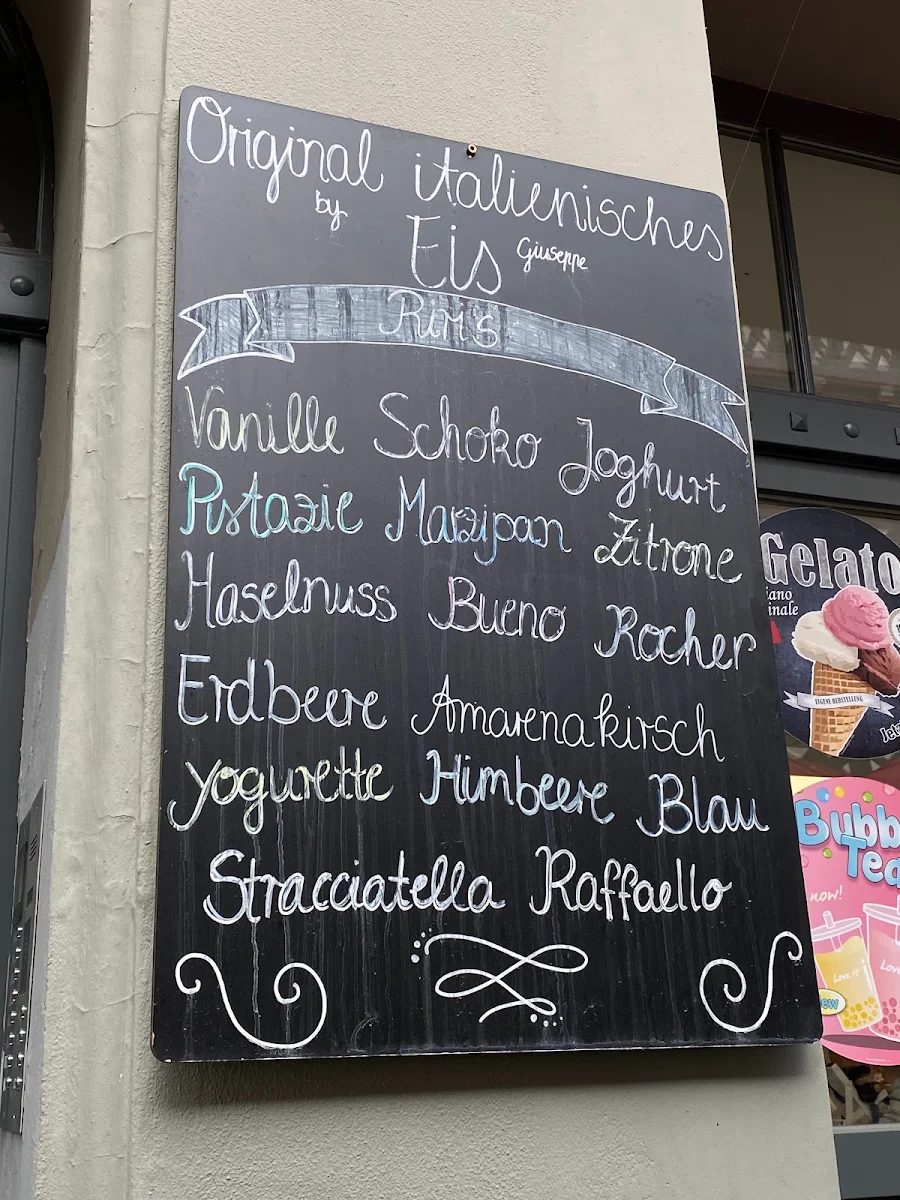 Original italienisches
by Eis Giuseppe
Rim's
Vanille Schoko Joghurt
Pistazie Marzipan Zitrone
Haselnuss Bueno Rocher
Erdbeere Amarenakirsch
yogurette Himbeere Blau
Stracciatella Raffaello
Gelato
EIGENE HERSTELLUNG
Bubb
Tea
now!
Love it